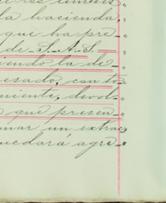 la hacienda,
que ha pre-
de S. A. S.
iendo la de
esado, con to
niente, devol
que presen
mar un extrac
uedará agre